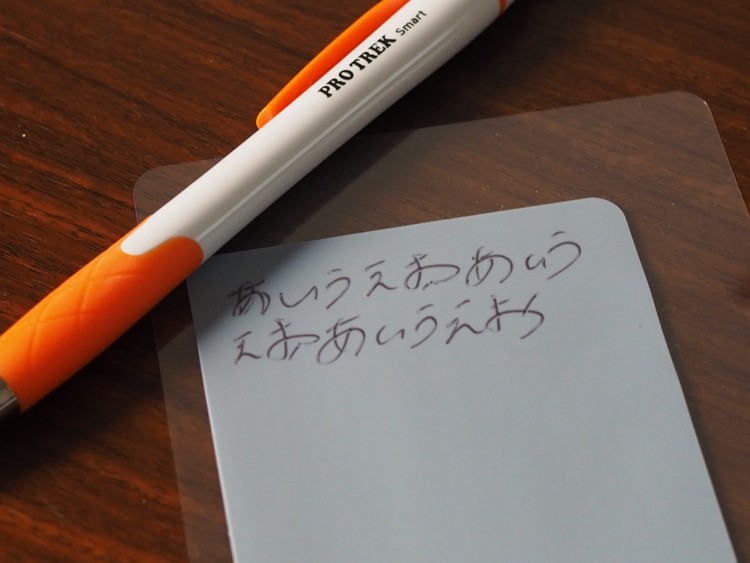 PRO TREK Smart
あいうえおあいう
えおあいうえお